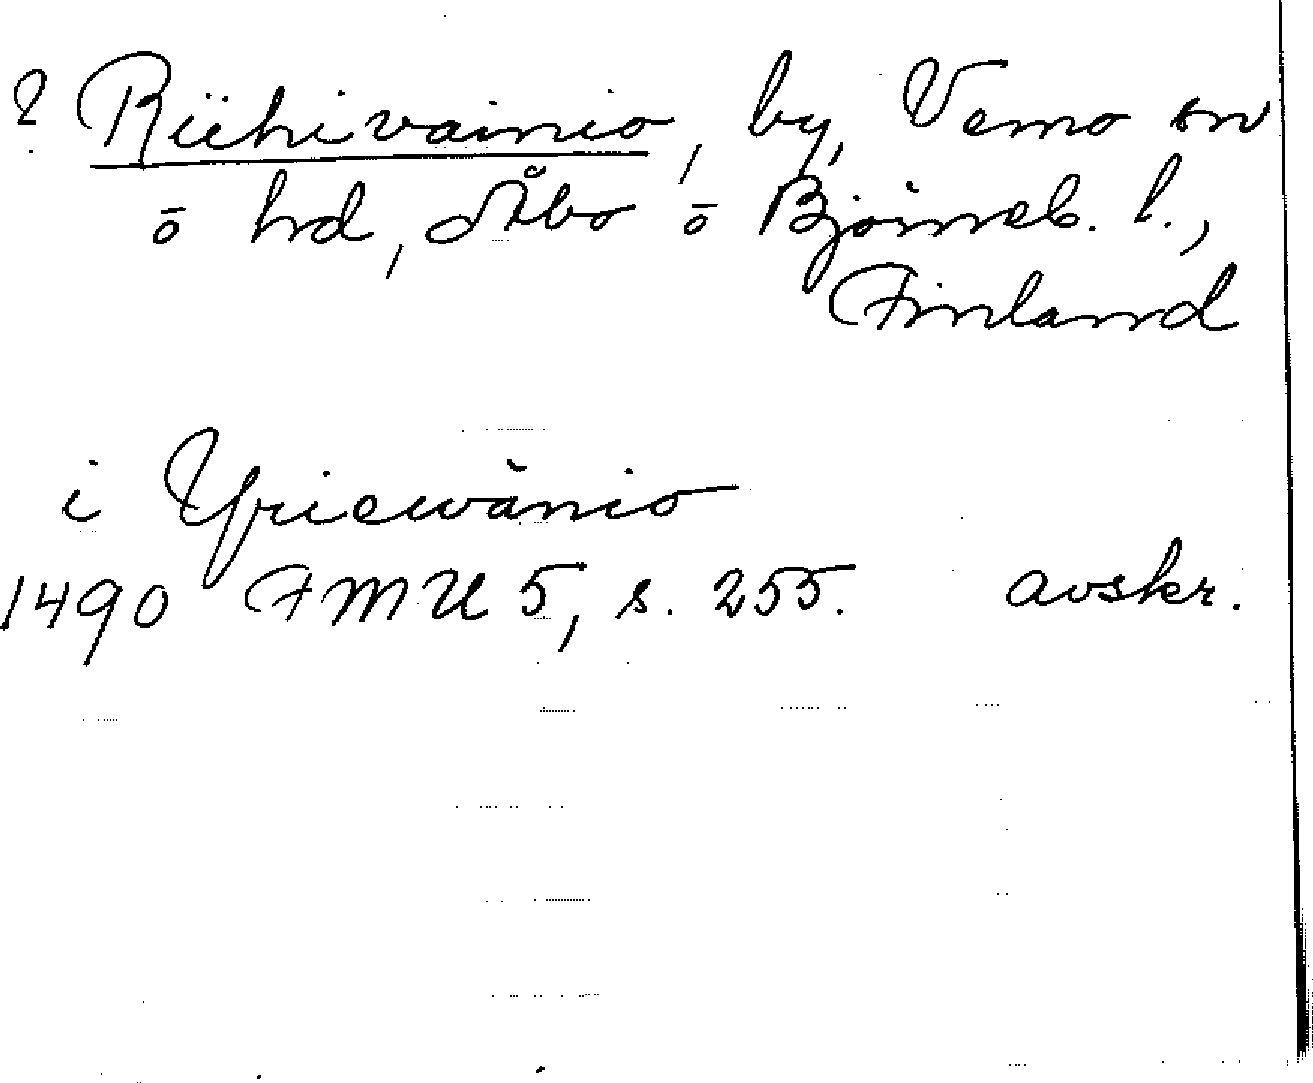 ? Riihivainio, by, Vemo sn
ō hd, Åbo ō Björneb. l.,
Finland
i Yriewänio
1490 FMU 5, s. 255. avskr.